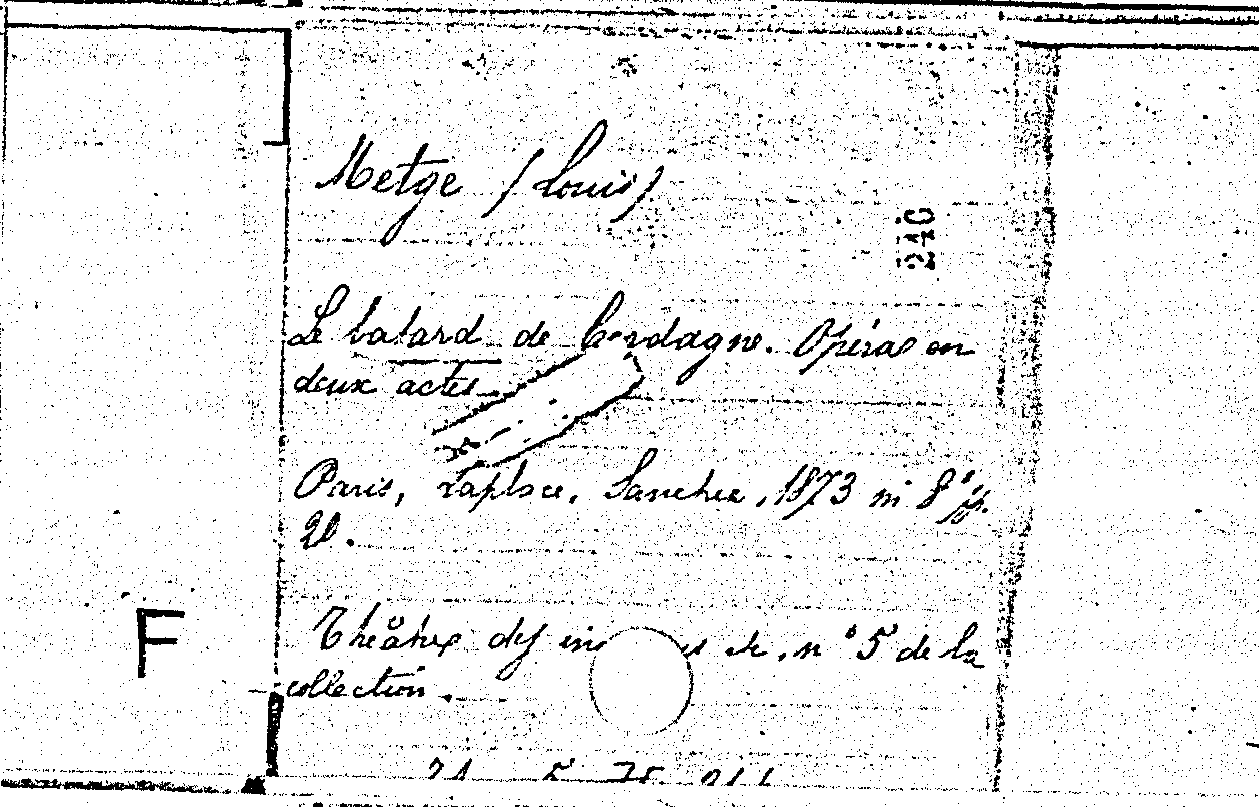 Metge (Louis)
240
Le batard de Cerdagne. Opéras en
deux actes
Paris, Laplace, Sanchez, 1873 in 8°
20.
F
Théâtre des in s etc, n° 5 de la
collection.